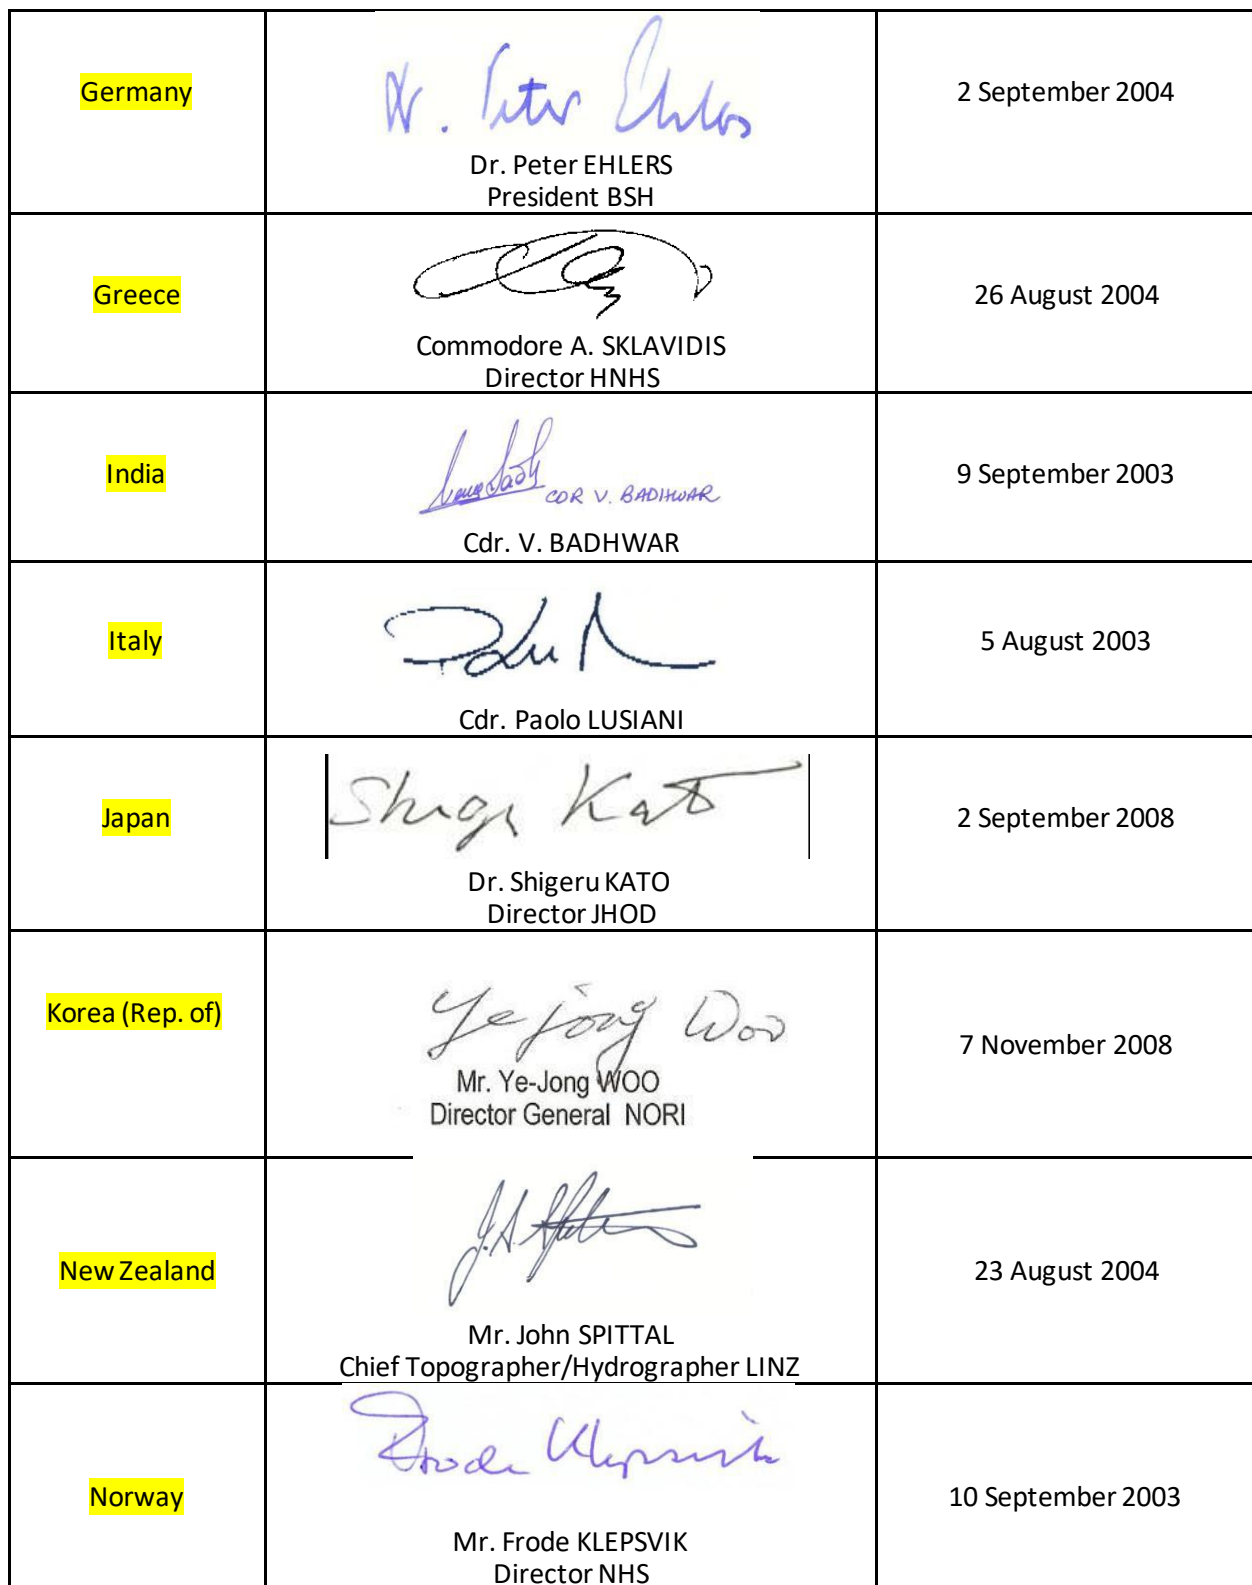 Germany
Dr. Peter Ehlers
Dr. Peter EHLERS
President BSH
2 September 2004
Greece
Commodore A. SKLAVIDIS
Director HNHS
26 August 2004
India
CDR V. BADHWAR
Cdr. V. BADHWAR
9 September 2003
Italy
Cdr. Paolo LUSIANI
5 August 2003
Japan
Shige Kato
Dr. Shigeru KATO
Director JHOD
2 September 2008
Korea (Rep. of)
Ye jong Woo
Mr. Ye-Jong WOO
Director General NORI
7 November 2008
New Zealand
Mr. John SPITTAL
Chief Topographer/Hydrographer LINZ
23 August 2004
Norway
Frode Klepsvik
Mr. Frode KLEPSVIK
Director NHS
10 September 2003